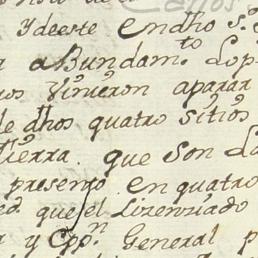 Carlos
Y deeste En dho S.r
aBundam.to Lop
Vinieron aparar
de dhos quatro sitios
tierra. que son La
presento en quatro
que el Lizenziado
y Cpp.n General p